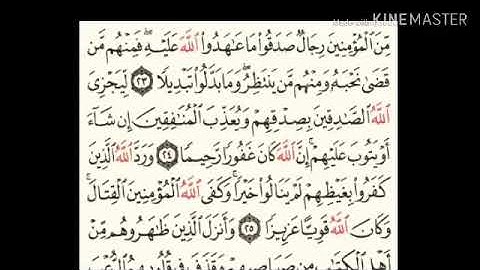 KINEMASTER
مِّنَ ٱلْمُؤْمِنِينَ رِجَالٌ صَدَقُوا۟ مَا عَـٰهَدُوا۟ ٱللَّهَ عَلَيْهِ ۖ فَمِنْهُم مَّن
قَضَىٰ نَحْبَهُۥ وَمِنْهُم مَّن يَنتَظِرُ ۖ وَمَا بَدَّلُوا۟ تَبْدِيلًا ٢٣ لِّيَجْزِىَ
ٱللَّهُ ٱلصَّـٰدِقِينَ بِصِدْقِهِمْ وَيُعَذِّبَ ٱلْمُنَـٰفِقِينَ إِن شَآءَ
أَوْ يَتُوبَ عَلَيْهِمْ ۚ إِنَّ ٱللَّهَ كَانَ غَفُورًا رَّحِيمًا ٢٤ وَرَدَّ ٱللَّهُ ٱلَّذِينَ
كَفَرُوا۟ بِغَيْظِهِمْ لَمْ يَنَالُوا۟ خَيْرًا ۚ وَكَفَى ٱللَّهُ ٱلْمُؤْمِنِينَ ٱلْقِتَالَ ۚ
وَكَانَ ٱللَّهُ قَوِيًّا عَزِيزًا ٢٥ وَأَنزَلَ ٱلَّذِينَ ظَـٰهَرُوهُم مِّنْ
أَهْلِ ٱلْكِتَـٰبِ مِن صَيَاصِيهِمْ وَقَذَفَ فِى قُلُوبِهِمُ ٱلرُّعْبَ